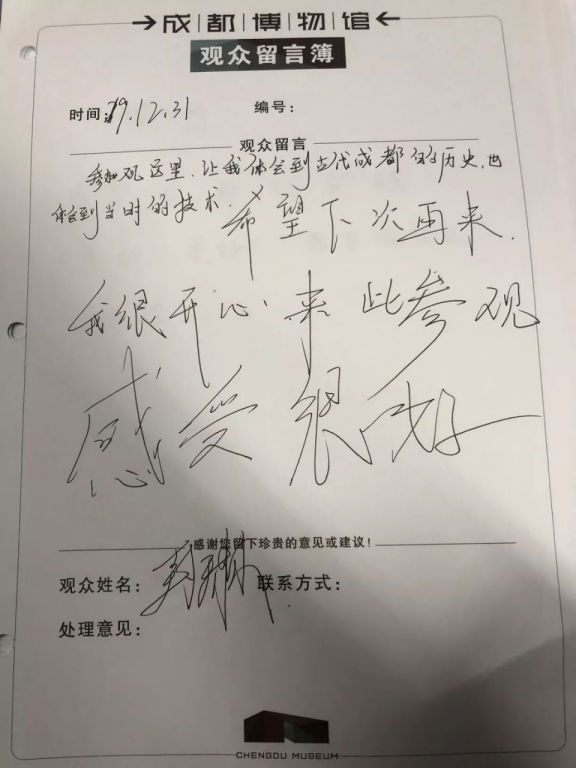 成都博物馆
观众留言簿
时间:19.12.31 编号:
观众留言
参加观这里,让我体会到古代成都的历史,也
体会到当时的技术.
希望下次再来.
我很开心来此参观
感受很好
感谢您留下珍贵的意见或建议!
观众姓名: 联系方式:
处理意见:
CHENGDU MUSEUM